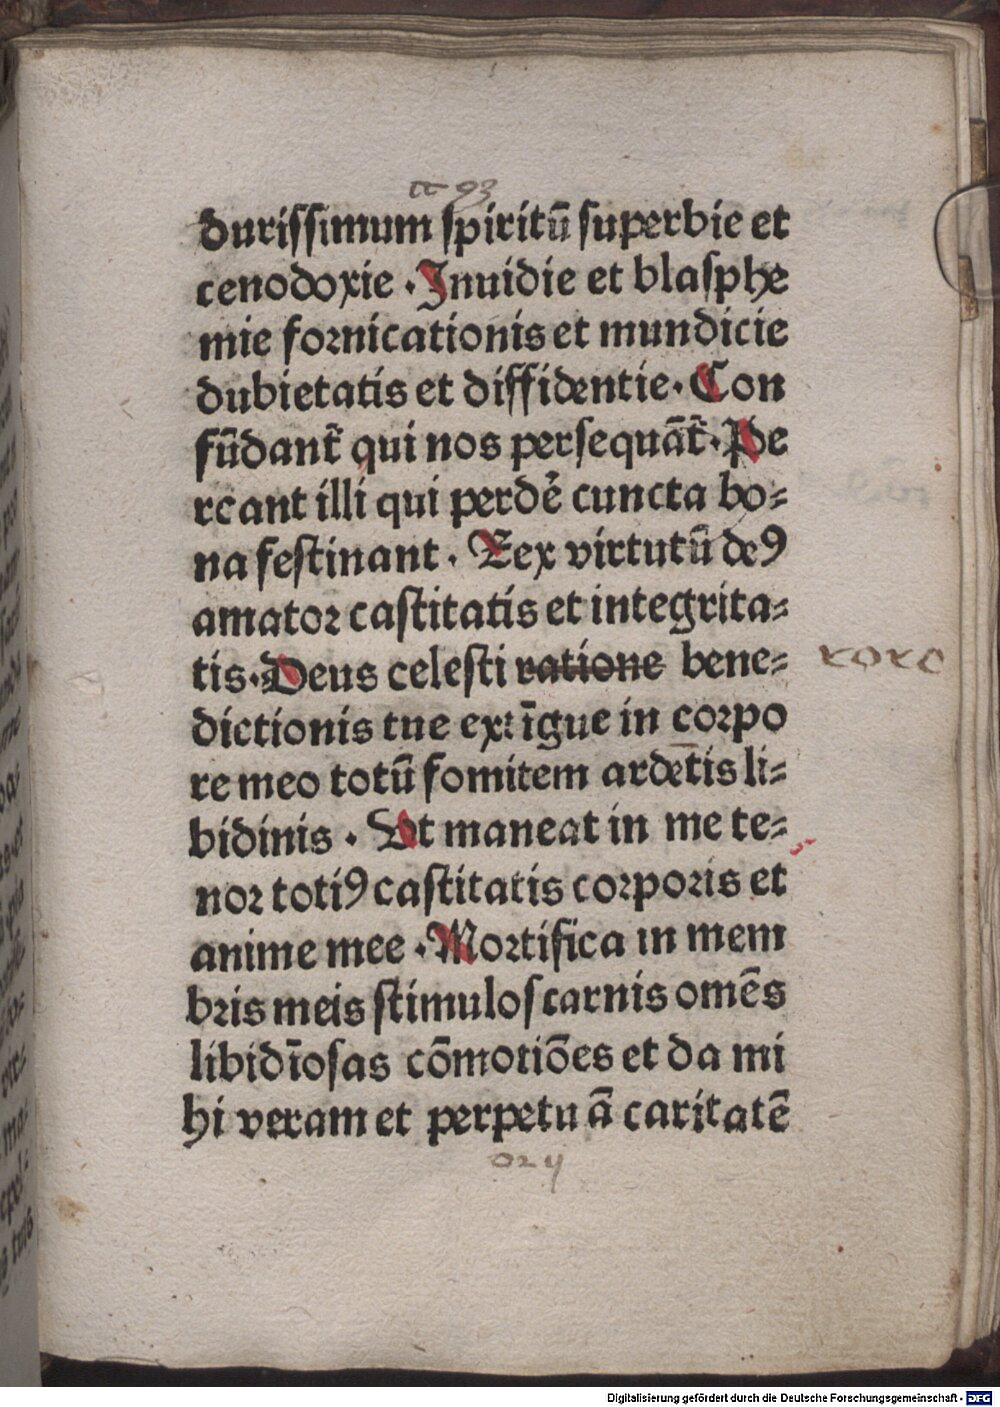 durissimum spiritū superbie et
cenodoxie . Inuidie et blasphe
mie fornicationis et mundicie
dubietatis et diffidentie. Con
fūdant̄ qui nos persequāt̄. Pe
reant illi qui perdē cuncta bo=
na festinant . Rex virtutū deꝰ
amator castitatis et integrita=
tis. Deus celesti ratione bene=
dictionis tue extīgue in corpo
re meo totū fomitem ardētis li=
bidinis . Ut maneat in me te=
nor totiꝰ castitatis corporis et
anime mee . Mortifica in mem
bris meis stimulos carnis omēs
libidīosas cōmotiōes et da mi
hi veram et perpetuā caritatē
Digitalisierung gefördert durch die Deutsche Forschungsgemeinschaft - DFG